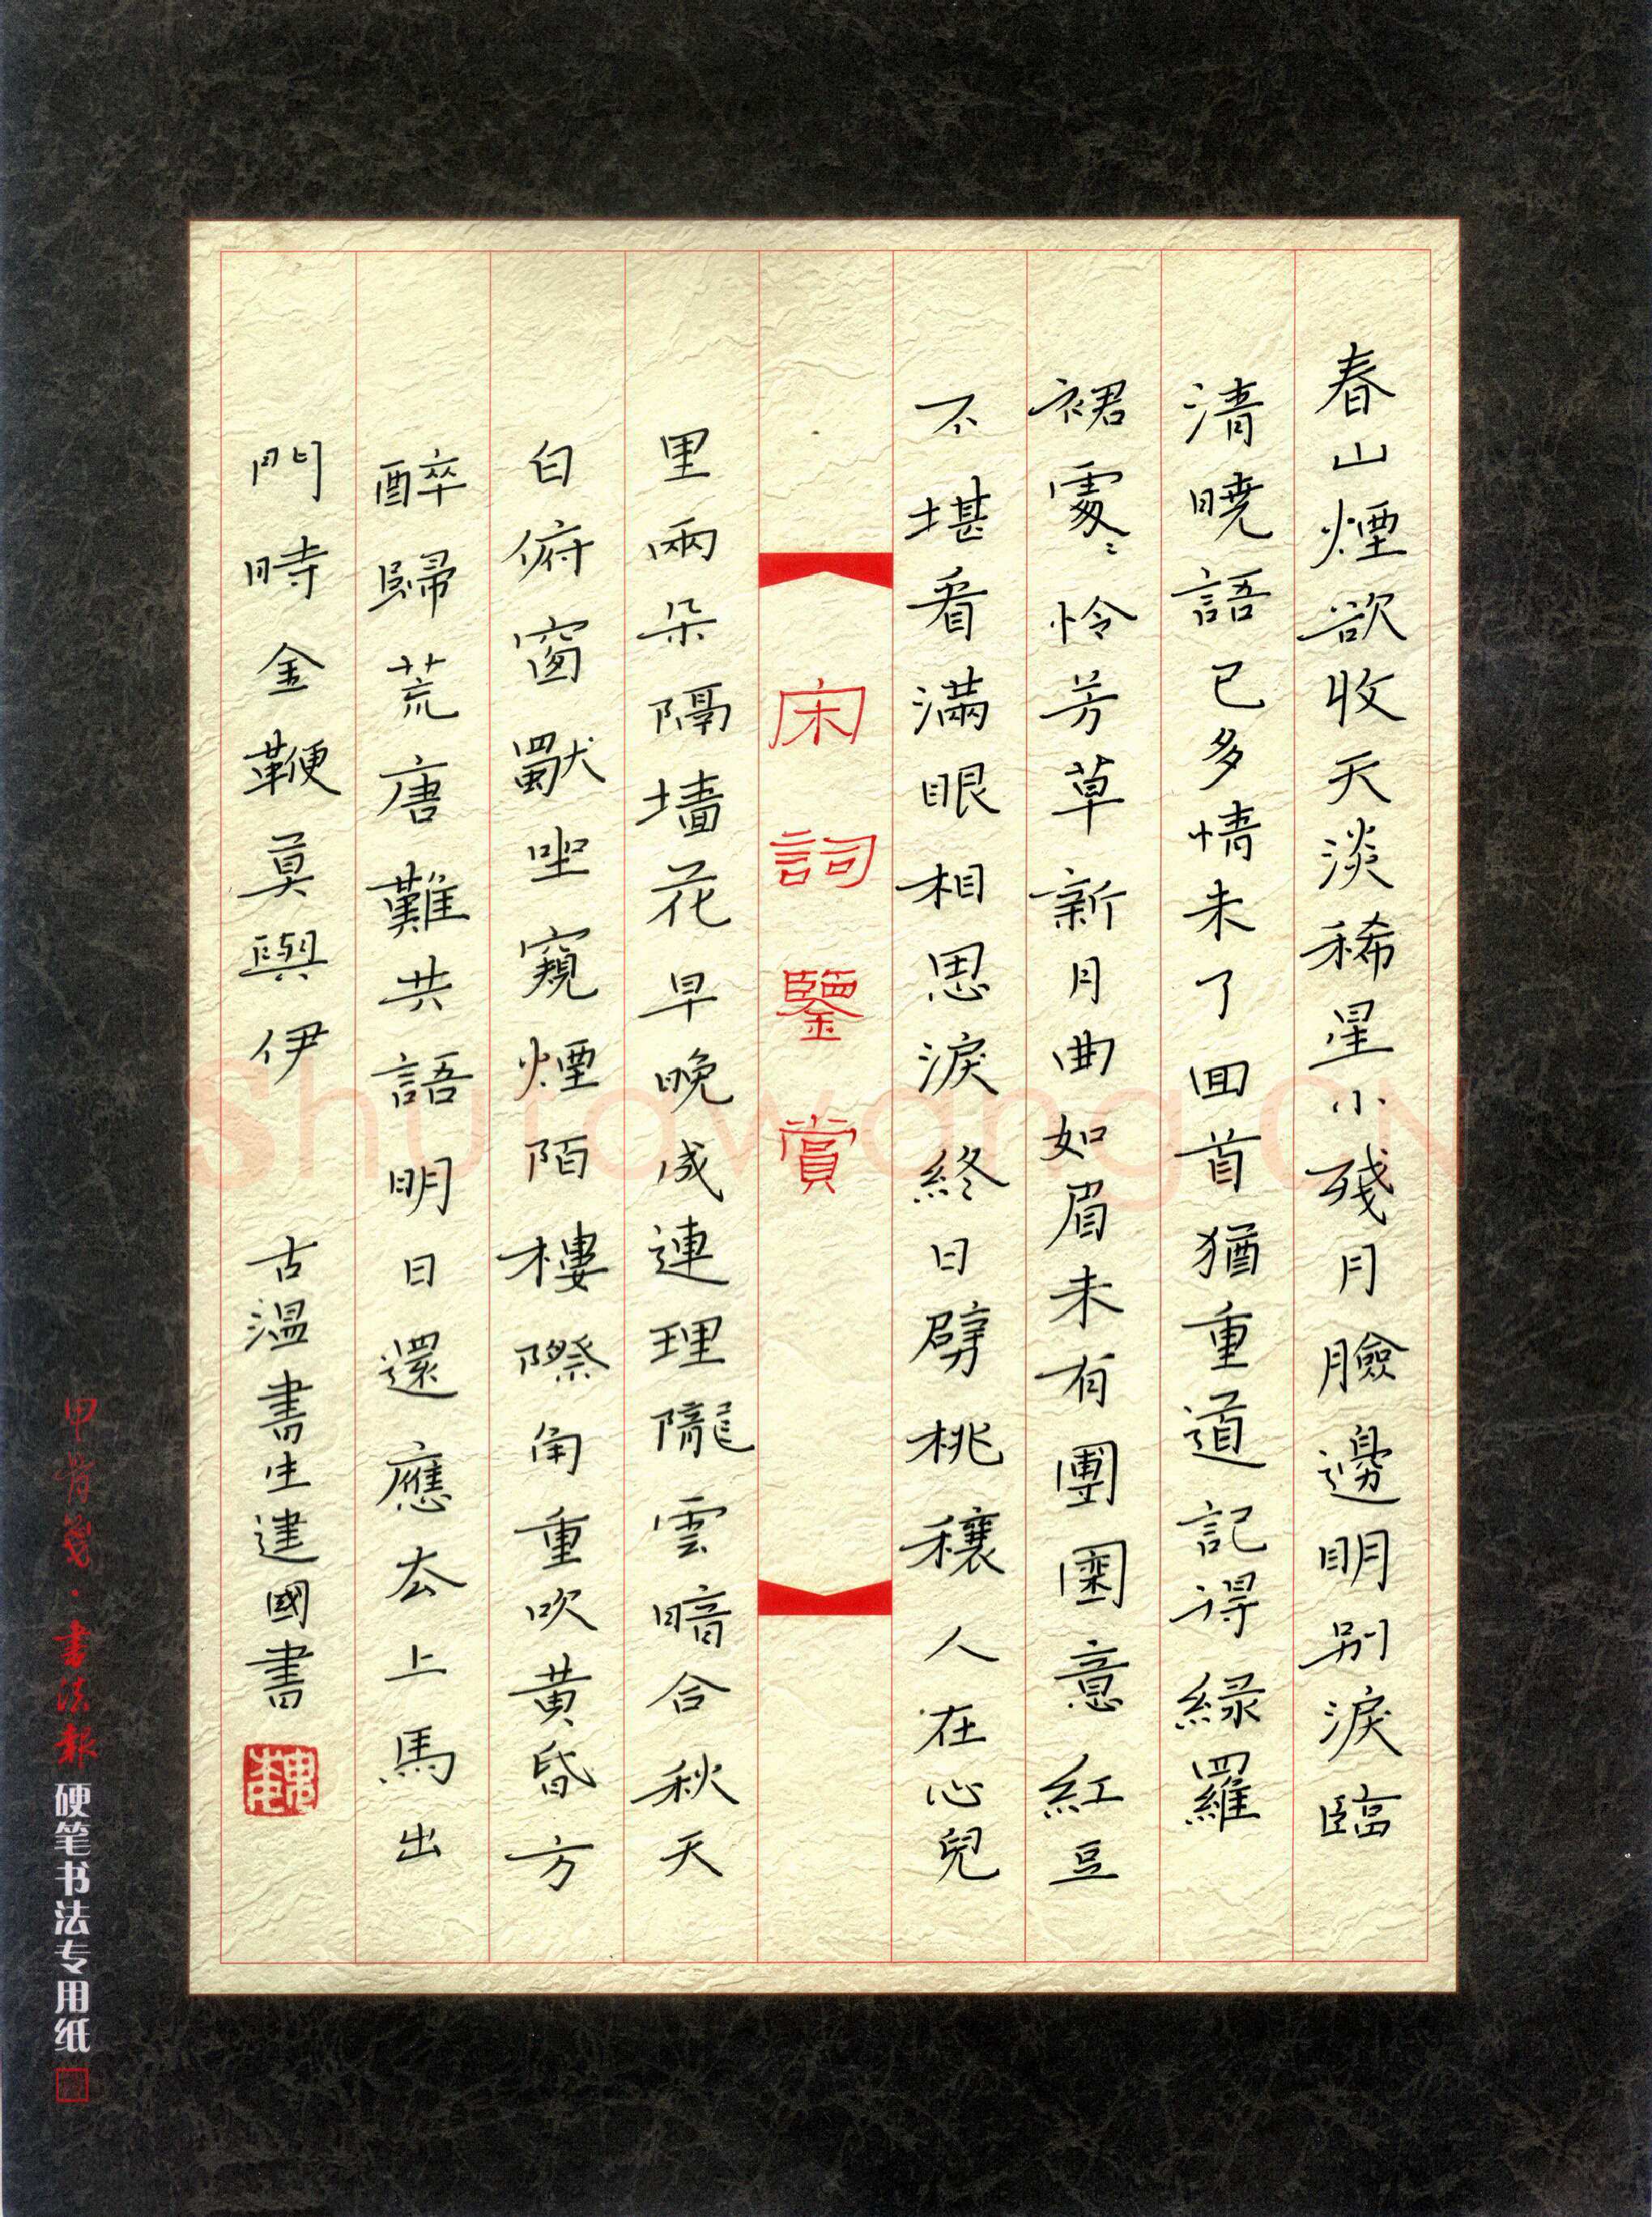 春山煙欲收天淡稀星小殘月臉邊明別淚臨
清曉語已多情未了囬首猶重道記得緑羅
裙處〻怜芳草新月曲如眉未有團圞意紅豆
不堪看滿眼相思淚終日劈桃穰人在心兒
宋詞鑒賞
里兩朵隔墻花早晚成連理隴雲暗合秋天
白俯窗獨坐窺煙陌樓際角重吹黃昏方
醉歸荒唐難共語明日還應去上馬出
門時金鞭莫與伊 古溫書生建國書
甲骨箋·書法報硬笔书法专用纸
Shufawang.CN